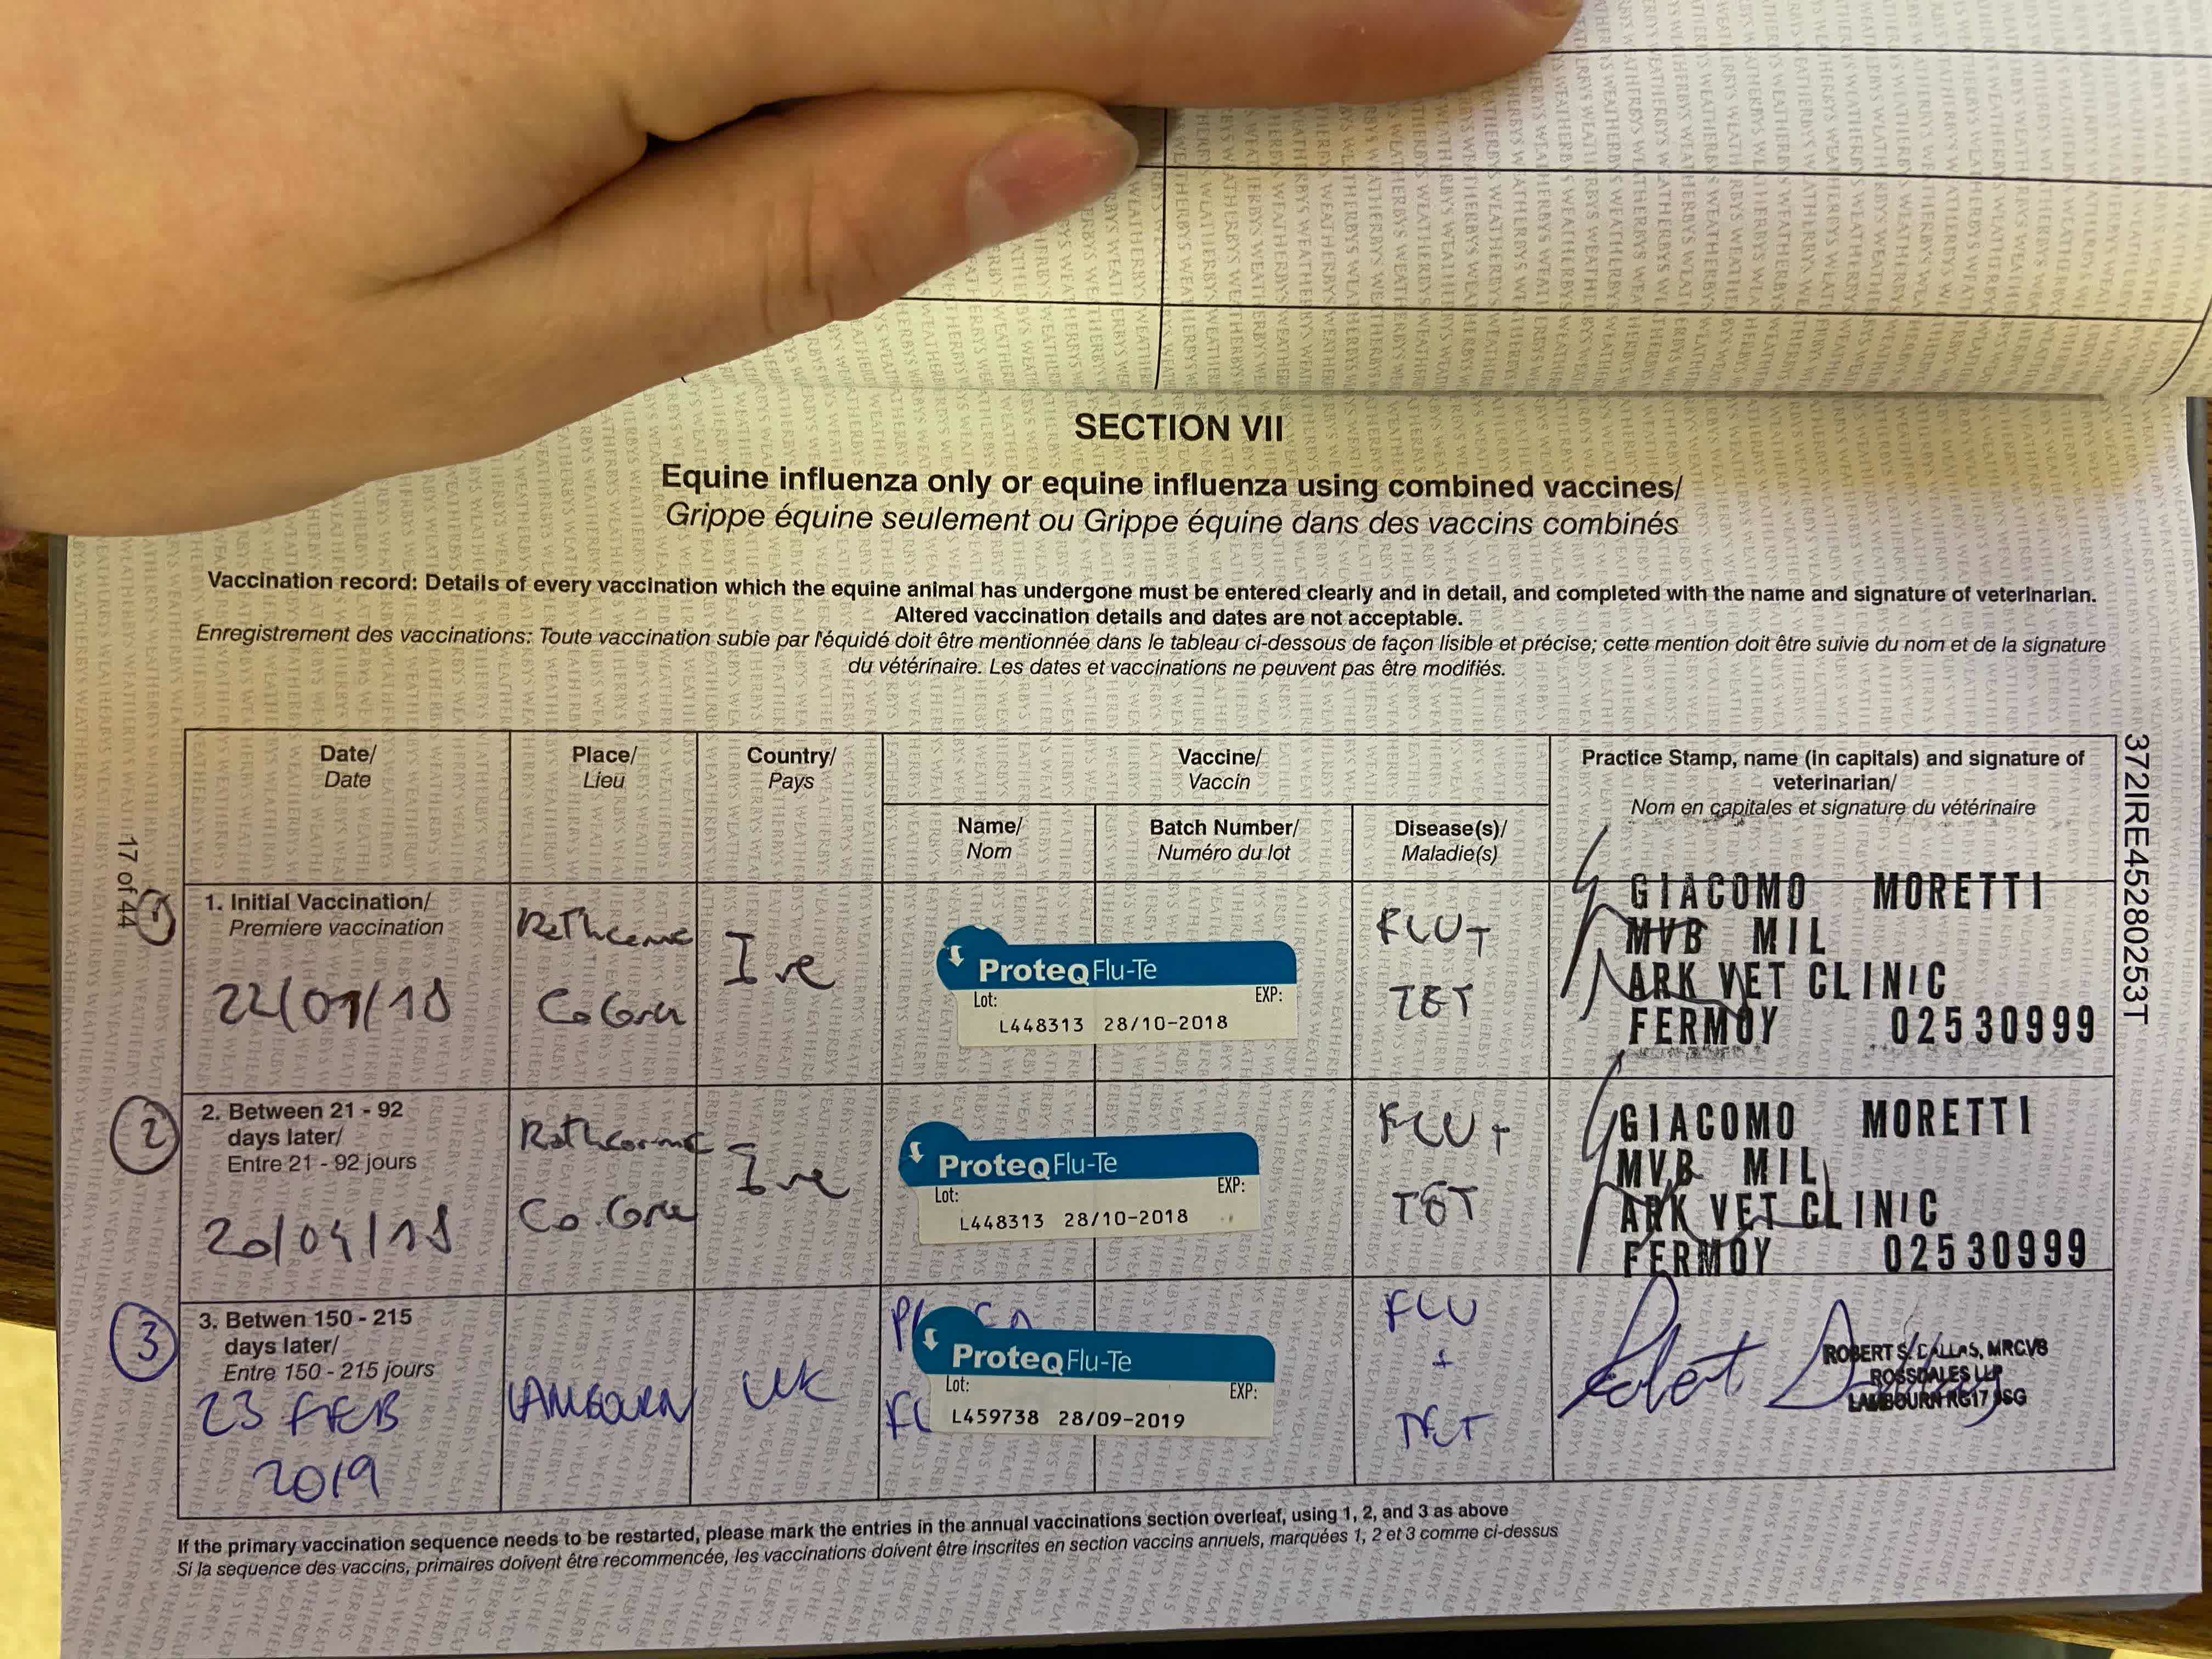 SECTION VII
Equine influenza only or equine influenza using combined vaccines/
Grippe équine seulement ou Grippe équine dans des vaccins combinés
Vaccination record: Details of every vaccination which the equine animal has undergone must be entered clearly and in detail, and completed with the name and signature of veterinarian.
Altered vaccination details and dates are not acceptable.
Enregistrement des vaccinations: Toute vaccination subie par l'équidé doit être mentionnée dans le tableau ci-dessous de façon lisible et précise; cette mention doit être suivie du nom et de la signature
du vétérinaire. Les dates et vaccinations ne peuvent pas être modifiés.
Date/
Date
Place/
Lieu
Country/
Pays
Vaccine/
Vaccin
Name/
Nom
Batch Number/
Numéro du lot
Disease(s)/
Maladie(s)
Practice Stamp, name (in capitals) and signature of
veterinarian/
Nom en capitales et signature du vétérinaire
1. Initial Vaccination/
Premiere vaccination
Co
Ire
ProteqFlu-Te
Lot:
EXP:
L448313 28/10-2018
FLU+
TET
GIACOMO MORETTI
MVB MIL
ARK VET CLINIC
FERMOY 02530999
2
2. Between 21 - 92
days later/
Entre 21 - 92 jours
20/04/18
Rathcormac
Co.
Ire
ProteqFlu-Te
Lot:
EXP:
L448313 28/10-2018
FLU+
TET
GIACOMO MORETTI
MVB MIL
ARK VET CLINIC
FERMOY 02530999
3
3. Betwen 150 - 215
days later/
Entre 150 - 215 jours
23 FEB
2019
LAMBOURN
UK
ProteqFlu-Te
Lot:
EXP:
L459738 28/09-2019
FLU
+
TET
Robert
ROBERT S. DALLAS, MRCVS
ROSSDALES LLP
LAMBOURN RG17
If the primary vaccination sequence needs to be restarted, please mark the entries in the annual vaccinations section overleaf, using 1, 2, and 3 as above
Si la sequence des vaccins, primaires doivent être recommencée, les vaccinations doivent être inscrites en section vaccins annuels, marquées 1, 2 et 3 comme ci-dessus
17 of 44
372IRE45280253T
WEATHERBYS